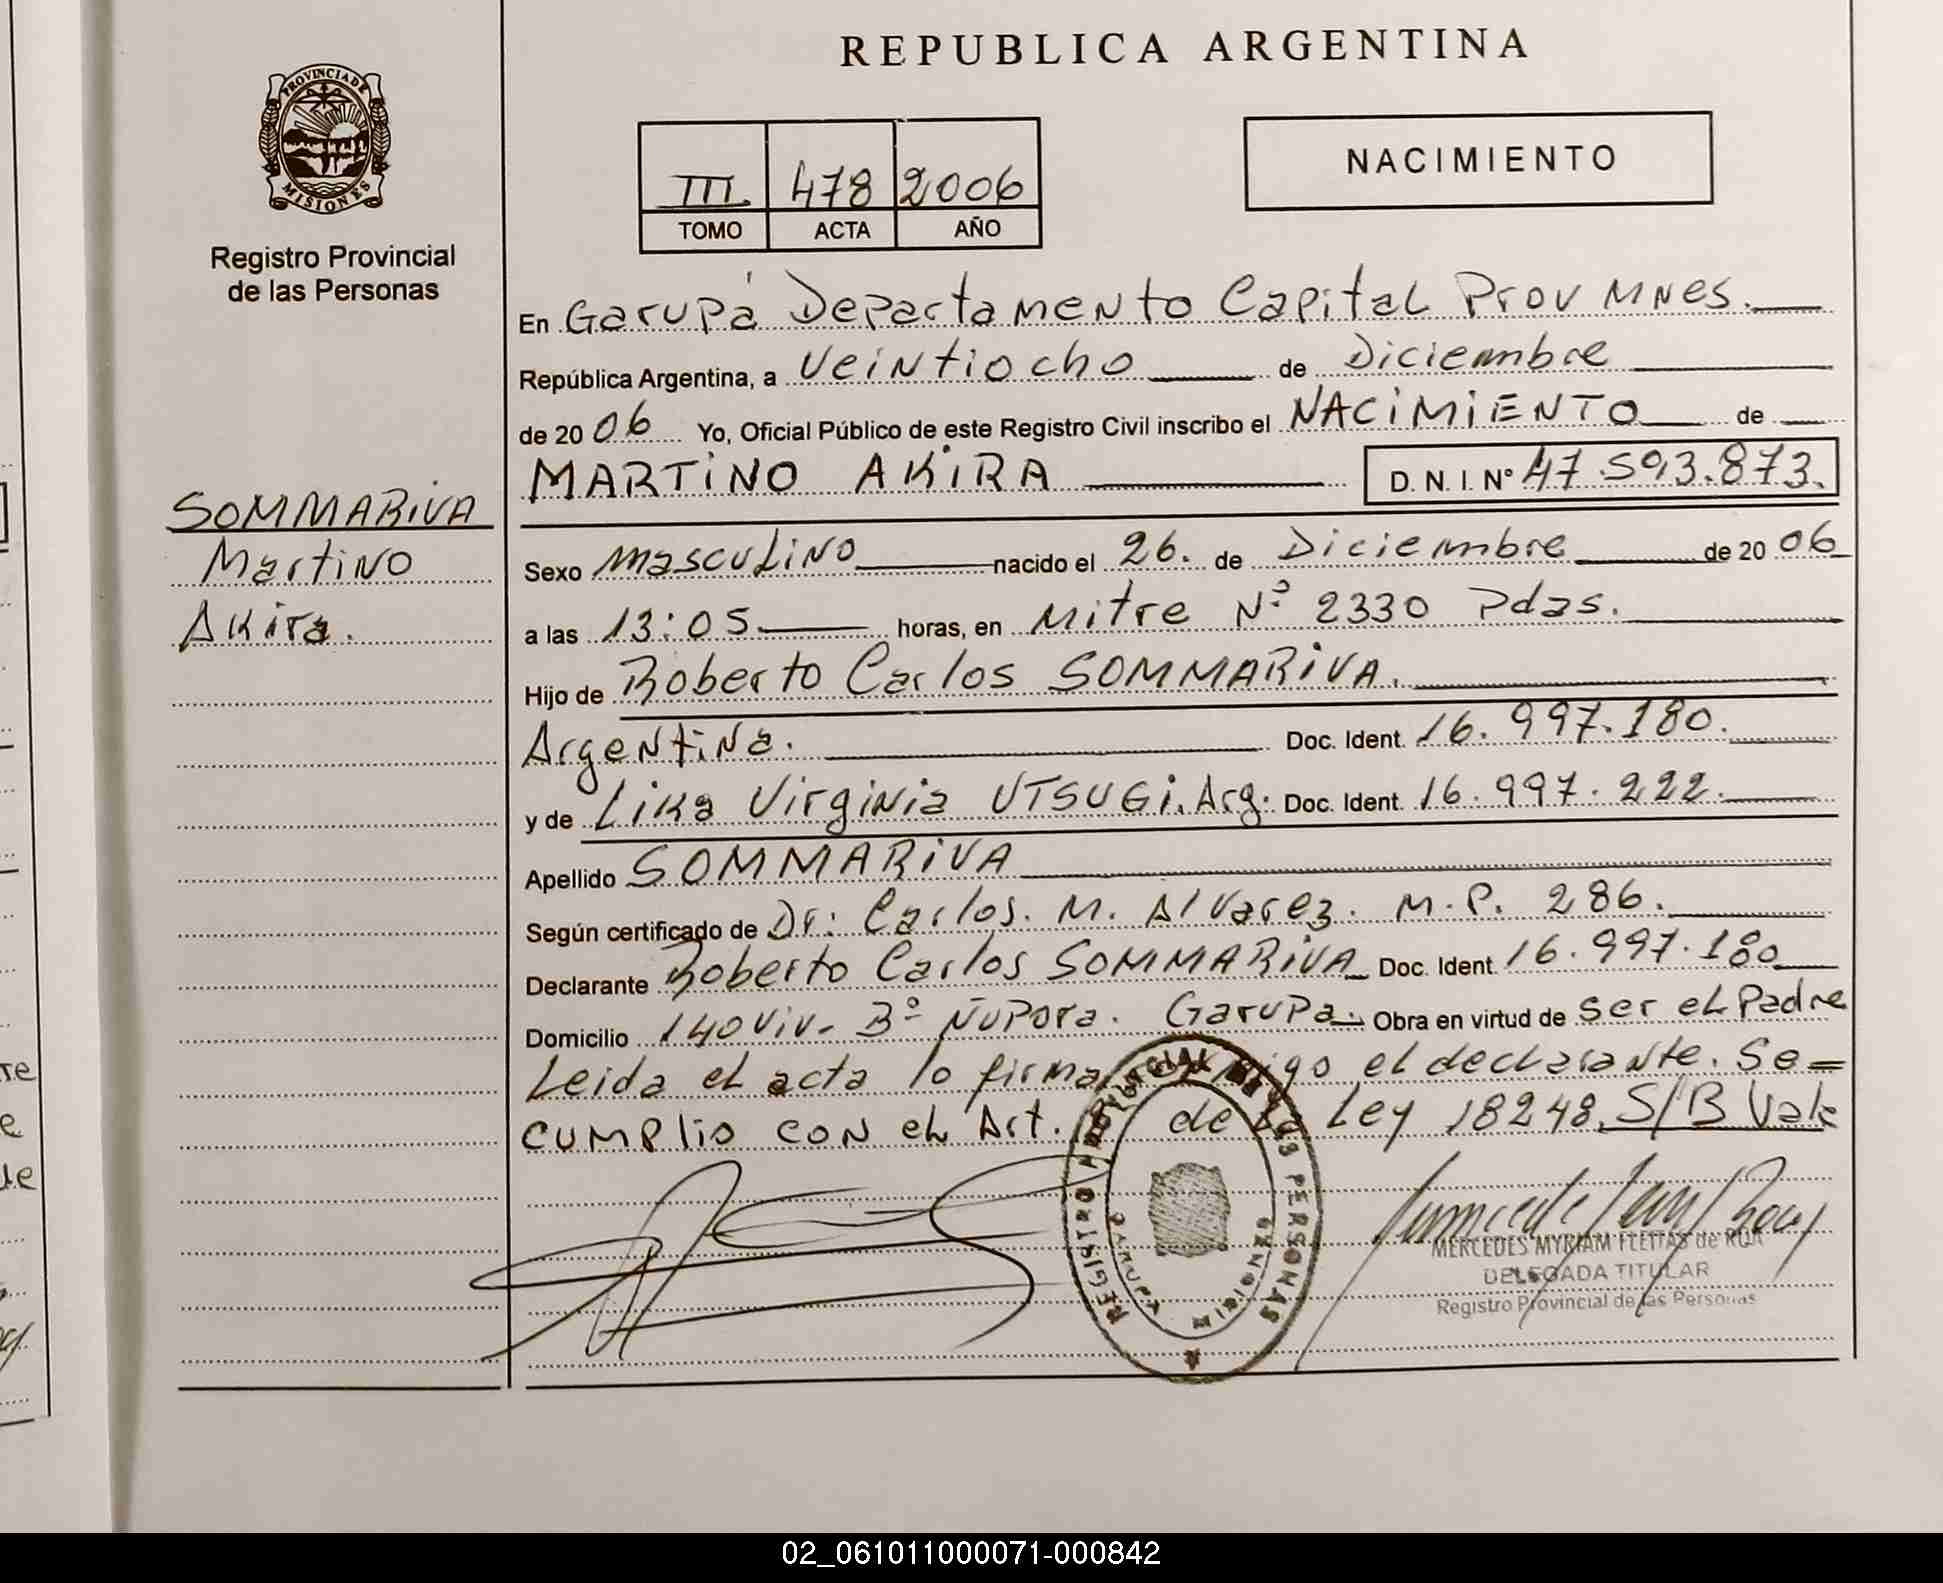 REPUBLICA ARGENTINA
PROVINCIA DE
MISIONES
Registro Provincial
de las Personas
III 478 2006
TOMO ACTA AÑO
NACIMIENTO
En Garupá Departamento Capital Prov Mnes.
República Argentina, a Veintiocho de Diciembre
de 2006 Yo, Oficial Público de este Registro Civil inscribo el NACIMIENTO de
MARTINO AKIRA D. N. I. Nº 47.593.873.
SOMMARIVA
Martino
Akira.
Sexo masculino nacido el 26. de Diciembre de 2006
a las 13:05 horas, en Mitre Nº 2330 Pdas.
Hijo de Roberto Carlos SOMMARIVA.
Argentina. Doc. Ident. 16.997.180.
y de Lika Virginia UTSUGI. Arg. Doc. Ident. 16.997.222.
Apellido SOMMARIVA
Según certificado de Dr: Carlos. M. Alvarez. M.P. 286.
Declarante Roberto Carlos SOMMARIVA Doc. Ident. 16.997.180
Domicilio 140 Viv. Bº Ñu Pora. Garupa. Obra en virtud de Ser el Padre
Leida el acta lo firma el declarante. Se=
cumplio con el Art. de la Ley 18248. S/B Vale
REGISTRO PROVINCIAL DE LAS PERSONAS
GARUPA
MISIONES
MERCEDES MYRIAM FLEITAS de ROA
DELEGADA TITULAR
Registro Provincial de las Personas
02_061011000071-000842